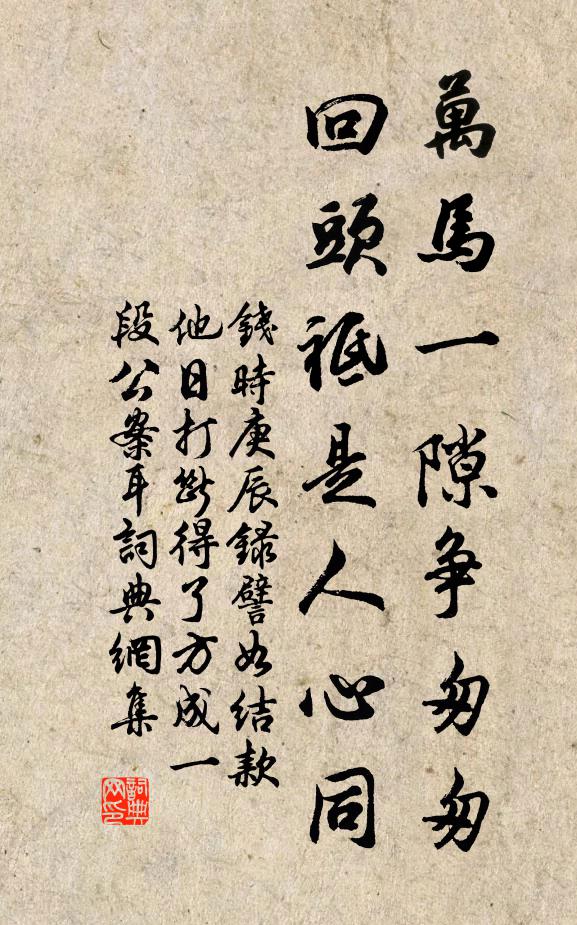 萬馬一隙争匆匆
回頭祗是人心同
錢時庚辰録譬如結款
他日打斷得了方成一
段公案耳詞典網集
詞典网印